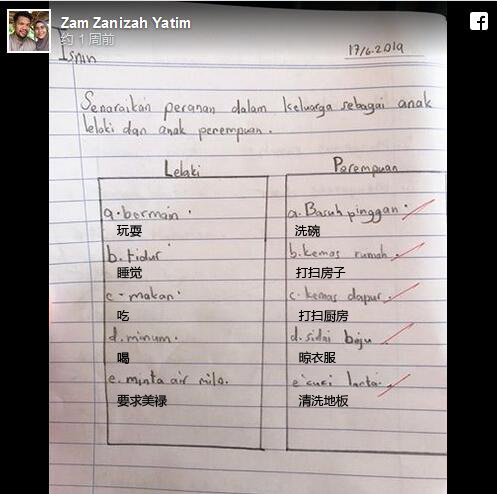 Zam Zanizah Yatim
约 1 周前
Isnin
17/6.2019
Senaraikan peranan dalam keluarga sebagai anak
lelaki dan anak perempuan.
Lelaki
Perempuan
a. bermain.
玩耍
b. tidur
睡觉
c. makan.
吃
d. minum.
喝
e. minta air milo.
要求美禄
a. Basuh pinggan.
洗碗
b. kemas rumah
打扫房子
c. kemas dapur
打扫厨房
d. sidai baju
晾衣服
e. cuci lantai.
清洗地板